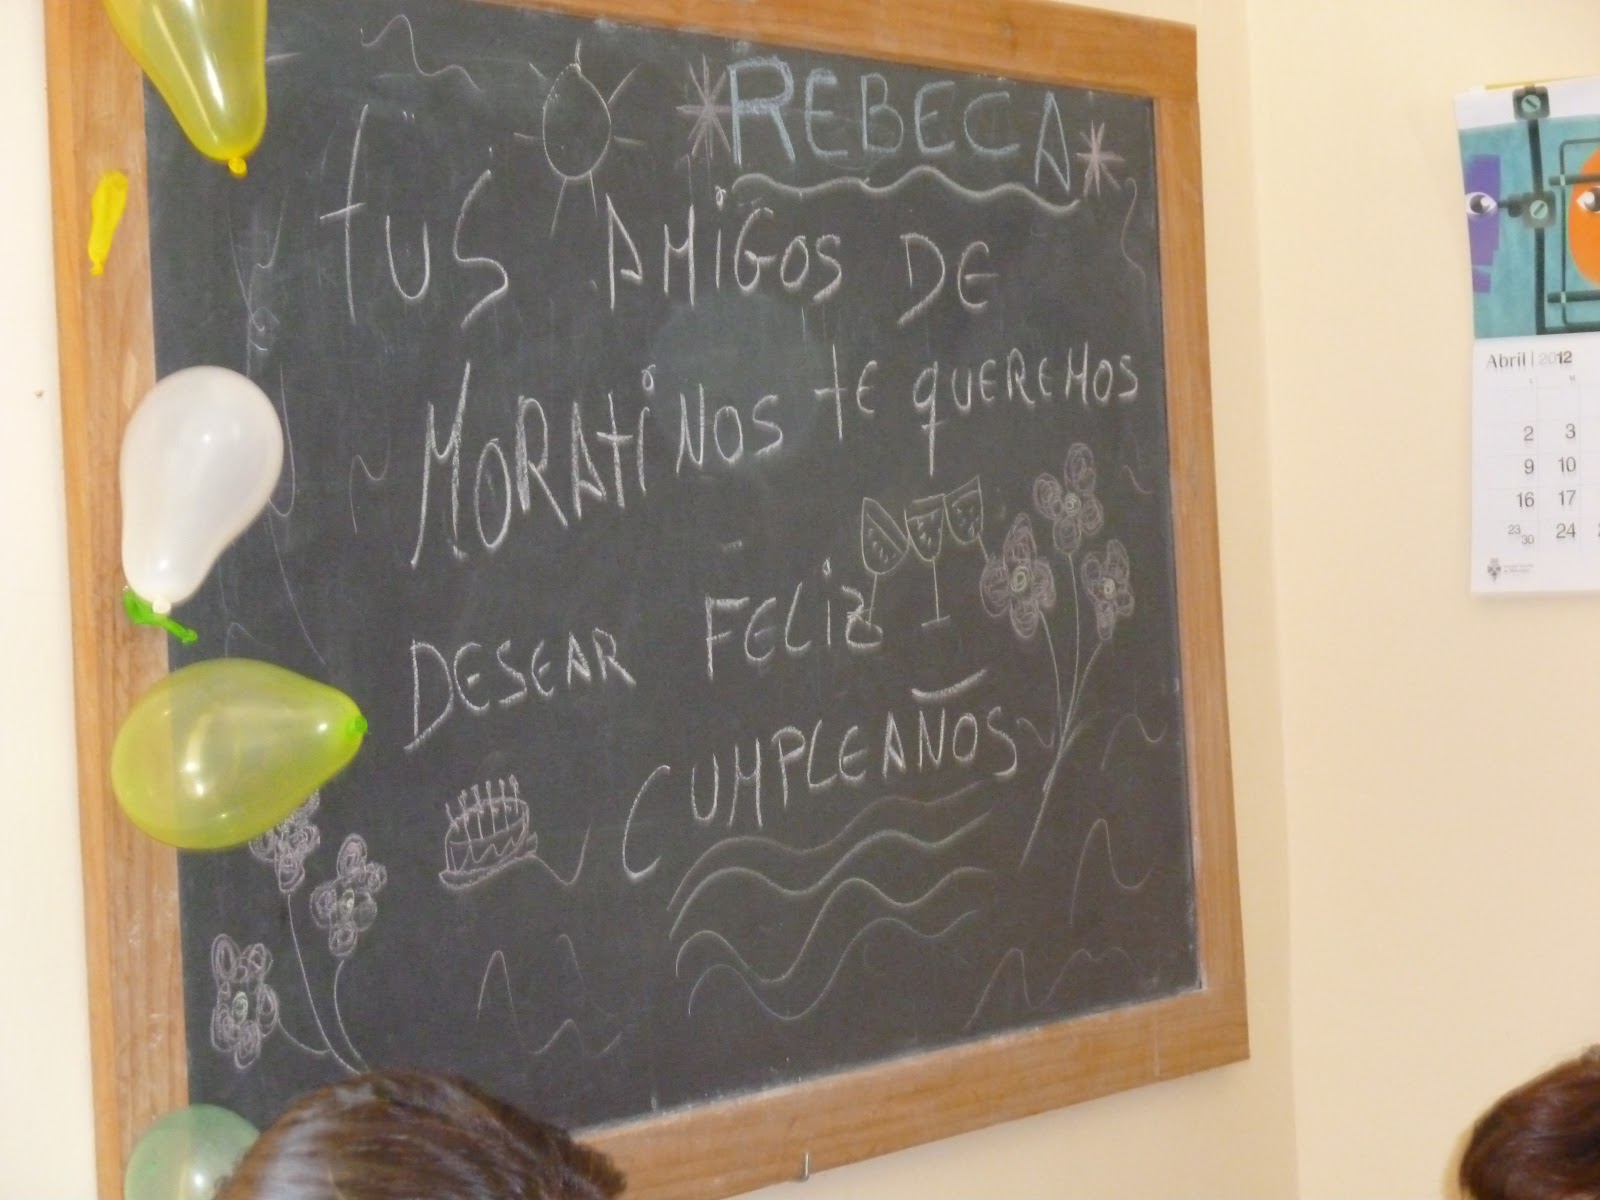 REBECA
TUS AMiGOS DE
MORATiNOS TE QUEREMOS
DESEAR FELiZ
CUMPLEAÑOS
Abril | 2012
2 3
9 10
16 17
23/30 24